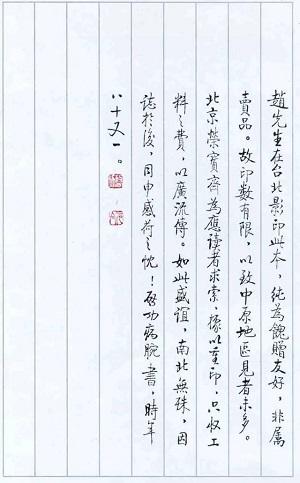 趙先生在台北影印此本，純為餽贈友好，非属
賣品。故印數有限，以致中原地區見者未多。
北京榮寶齋為應读者求索，據以重印，只收工
料之費，以廣流傳。如此盛誼，南北無殊，因
誌於後，用申感荷之忱！啓功病腕書，時年
八十又一。